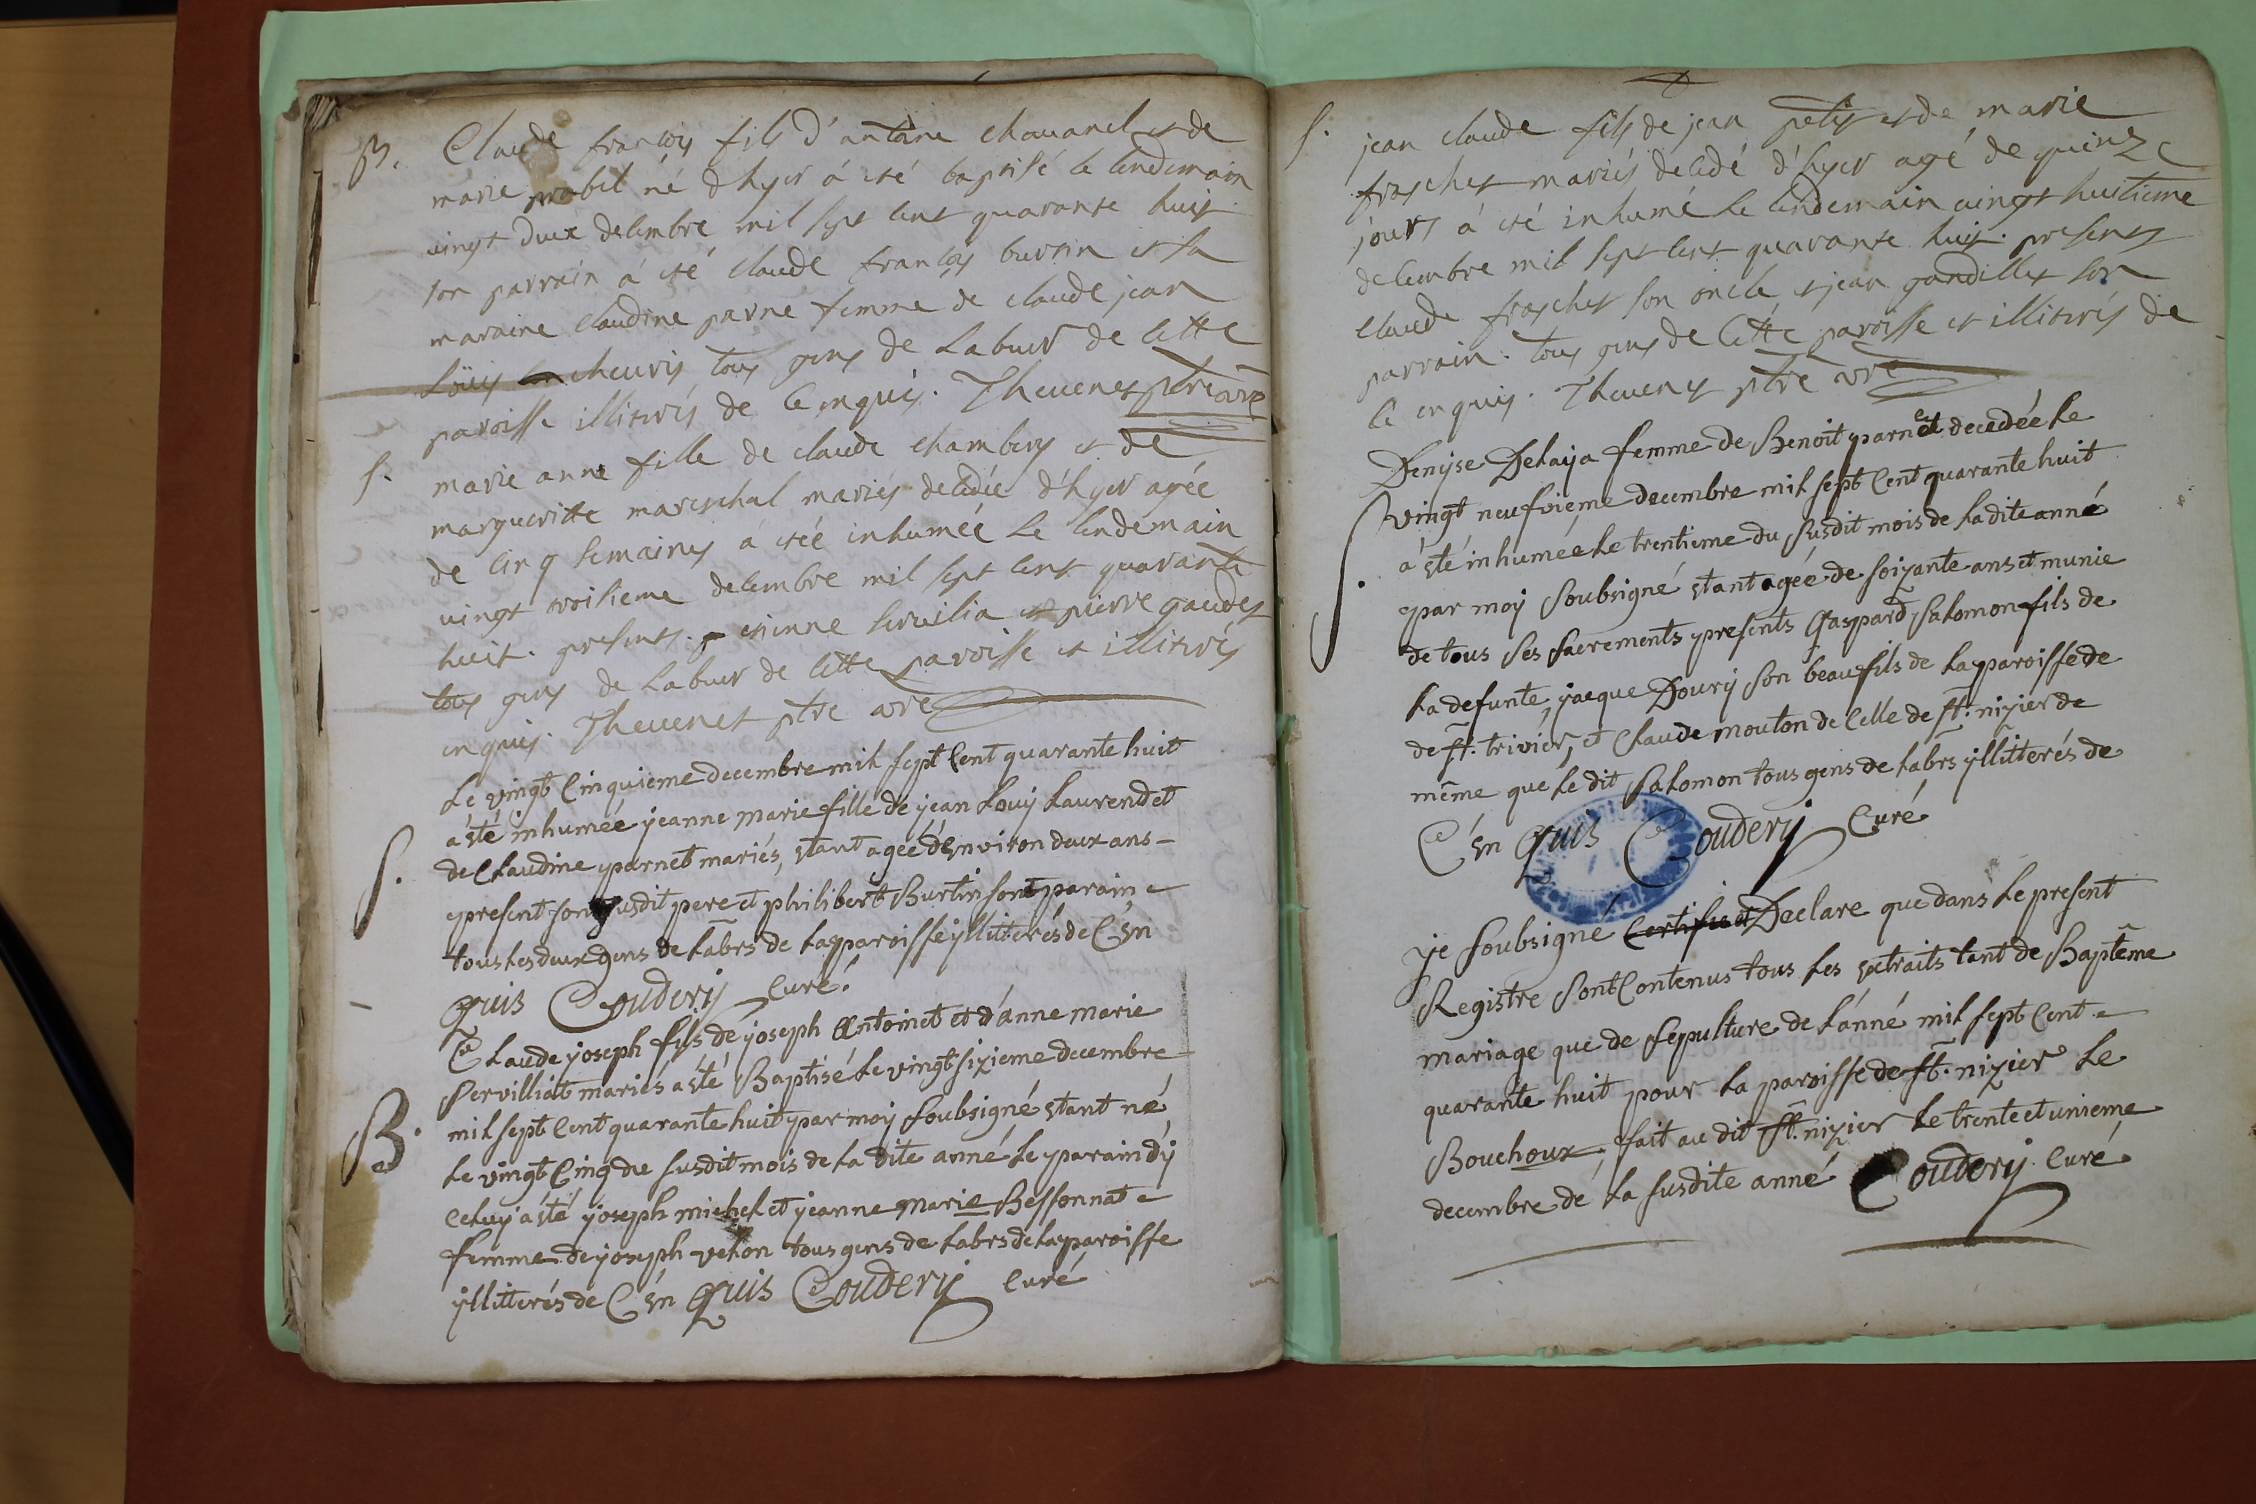 B. Claude francois fils d'antoine chavanel et de
marie probel né d'hyer à été baptisé le lendemain
vingt deux decembre mil sept cent quarante huit
son parrain à été claude francois burtin et sa
maraine claudine parne femme de claude jean
loüis cheuris tous gens de labeur de cette
paroisse illiterés de ce enquis. Thevenet ptre vre
S. marie anne fille de claude chambery et de
margueritte mareschal mariés decedée d'hyer agée
de cinq semaines à étéé inhumée le lendemain
vingt troisieme decembre mil sept cent quarante
huit. presents. etienne servilia et pierre gaudet
tous gens de labeur de cette paroisse et illiterés
enquis. Thevenet ptre vre
Le vingt Cinquieme decembre mil sept Cent quarante huit
a été inhumée yeanne marie fille de yean Louy Laurend et
S. de Claudine parnet mariés, étant agée d'environ deux ans -
present son susdit pere et philibert Burtin son parain
tous les deux gens de labrs de la paroisse yllitterés de C'en
quis Coudery Curé.
Claude yoseph fils de yoseph Antoinet et d'anne marie
Servilliat mariés a été Baptisé le vingt sixieme decembre
B. mil sept Cent quarante huit par moy soubsigné étant né
le vingt Cinq du susdit mois de la dite anné le parain dy
celuy a été yoseph michel et yeanne marie Bessonnat
femme de yoseph velon tous gens de labrs de la paroisse
yllitterés de C'en quis Coudery Curé
S. jean claude fils de jean petit et de marie
fraschet mariés decedé d'hyer agé de quinze
jours à été inhumé le lendemain vingt huitieme
decembre mil sept cent quarante huit. presents
claude fraschet son oncle et jean gandillet son
parrain. tous gens de cette paroisse et illiterés de
ce enquis. Thevenet ptre vre
Denyse Delaya femme de Benoit parnet decedée le
vingt neufvieme decembre mil sept Cent quarante huit
S. a été inhumée le trentieme du susdit mois de la dite anné
par moy soubsigné étant agée de soixante ans et munie
de tous ses sacrements presents Gaspard Salomon fils de
la defunte, yacque Doury son beau fils de la paroisse de
de st. trivier, et Claude mouton de Celle de st. nizier de
même que le dit Salomon tous gens de labrs yllitterés de
C'en quis Coudery Curé
ye soubsigné Certifie et Declare que dans le present
Registre sont Contenus tous les extraits tant de Baptême
mariage que de sepulture de l'anné mil sept Cent
quarante huit pour la paroisse de st. nizier le
Bouchoux, fait au dit st. nizier le trente et unieme
decembre de la susdite anné Coudery Curé